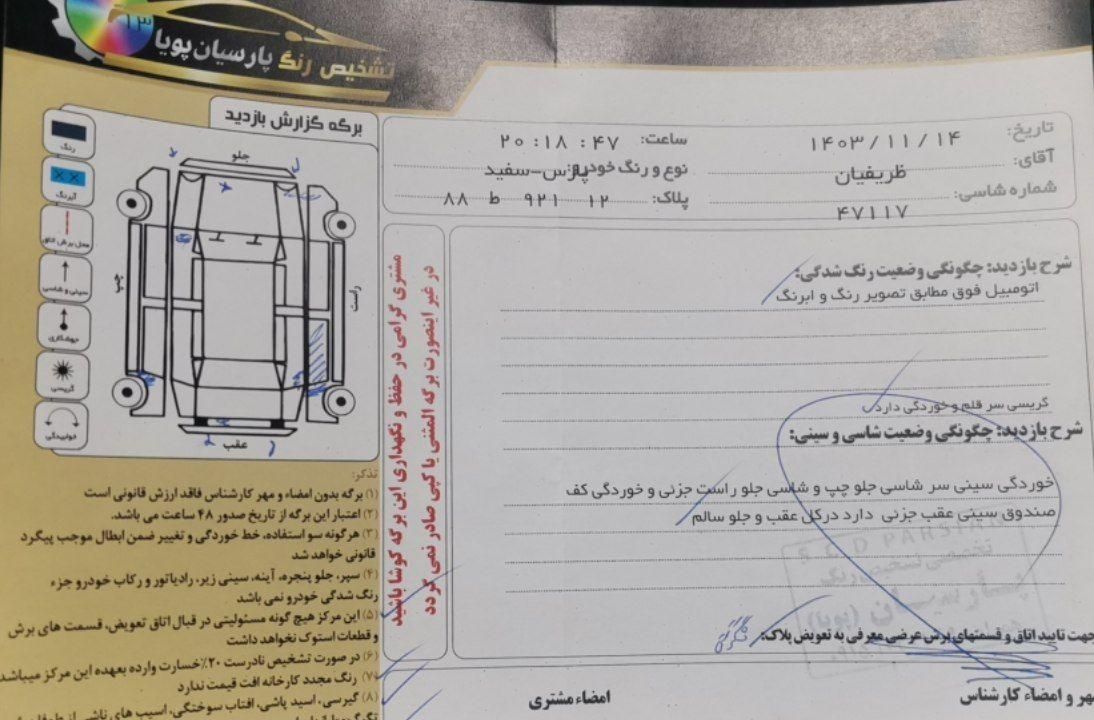 ۱۳
تشخیص رنگ پارسیان پویا
تاریخ: ۱۴۰۳/۱۱/۱۴
ساعت: ۲۰:۱۸:۴۷
آقای: ظریفیان
نوع و رنگ خودرو: پارس-سفید
شماره شاسی: ۴۷۱۱۷
پلاک: ۱۲ ۹۲۱ ط ۸۸
برگه گزارش بازدید
رنگ
آبرنگ
محل برش اتاق
سینی و شاسی
جوشکاری
گریسی
خوابیدگی
جلو
چپ
راست
عقب
مشتری گرامی در حفظ و نگهداری این برگه کوشا باشید
در غیر اینصورت برگه المثنی یا کپی صادر نمی گردد
شرح بازدید: چگونگی وضعیت رنگ شدگی:
اتومبیل فوق مطابق تصویر رنگ و ابرنگ
گریسی سر قلم و خوردگی دارد
شرح بازدید: چگونگی وضعیت شاسی و سینی:
خوردگی سینی سر شاسی جلو چپ و شاسی جلو راست جزئی و خوردگی کف
صندوق سینی عقب جزئی دارد درکل عقب و جلو سالم
تخصصی تشخیص رنگ
(پویا)
جهت تایید اتاق و قسمتهای برش عرضی معرفی به تعویض پلاک:
مهر و امضاء کارشناس
امضاء مشتری
تذکر:
۱) برگه بدون امضاء و مهر کارشناس فاقد ارزش قانونی است
۲) اعتبار این برگه از تاریخ صدور ۴۸ ساعت می باشد.
۳) هرگونه سو استفاده، خط خوردگی و تغییر ضمن ابطال موجب پیگرد
قانونی خواهد شد
۴) سپر، جلو پنجره، آینه، سینی زیر، رادیاتور و رکاب خودرو جزء
رنگ شدگی خودرو نمی باشد
۵) این مرکز هیچ گونه مسئولیتی در قبال اتاق تعویض، قسمت های برش
و قطعات استوک نخواهد داشت
۶) در صورت تشخیص نادرست ۲۰٪ خسارت وارده بعهده این مرکز میباشد
۷) رنگ مجدد کارخانه افت قیمت ندارد
۸) گیرسی، اسید پاشی، افتاب سوختگی، اسیب های ناشی از